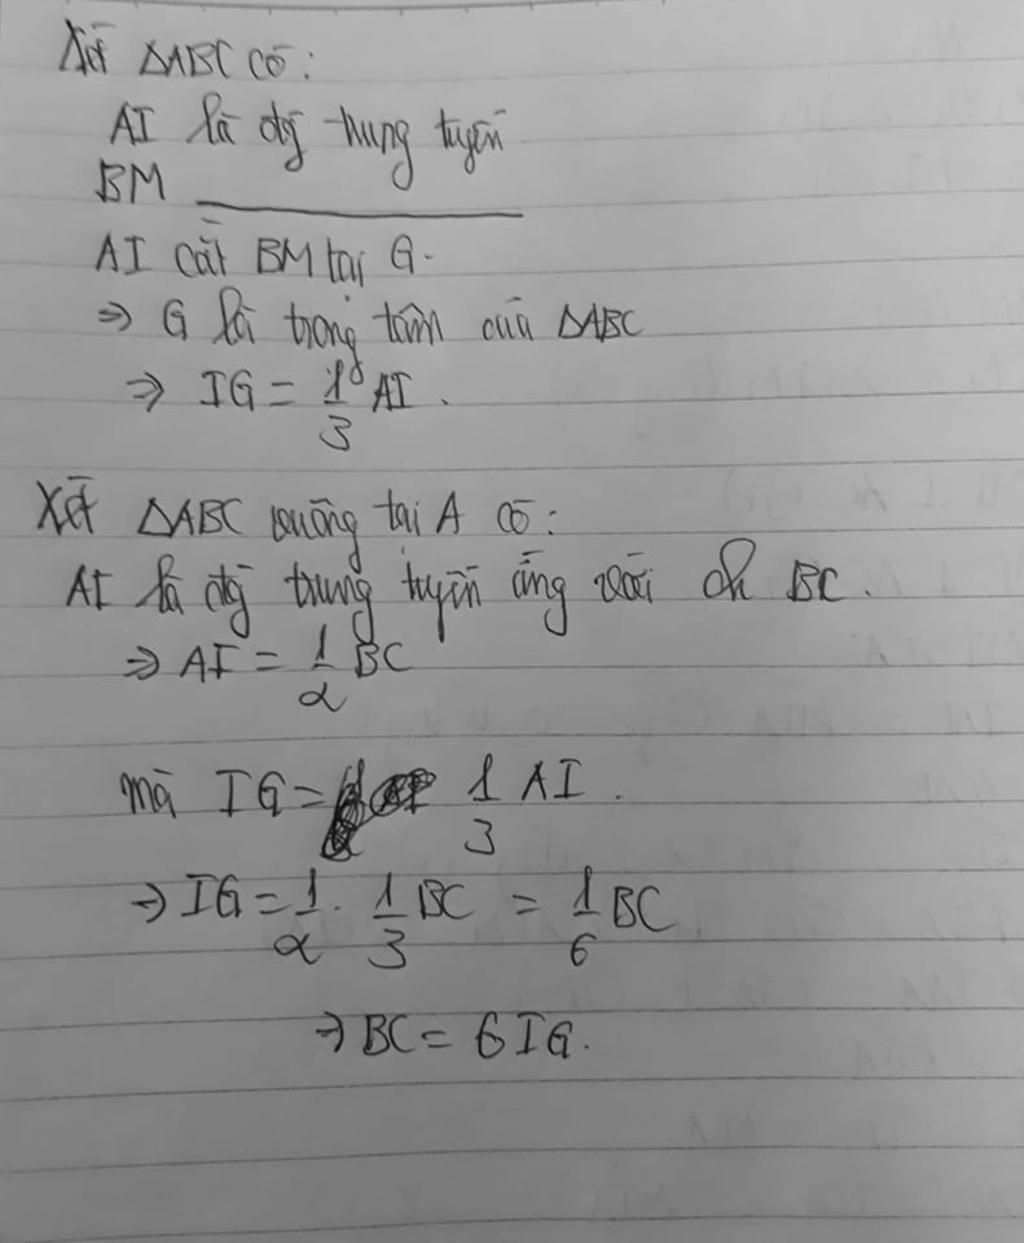 Xét ΔABC có:
AI là đg trung tuyến
BM ————————
AI cắt BM tại G.
⇒ G là trọng tâm của ΔABC
⇒ IG = 1/3 AI.
Xét ΔABC vuông tại A có:
AI là đg trung tuyến ứng với ch BC.
⇒ AI = 1/2 BC
mà IG = 1/3 AI.
⇒ IG = 1/2 . 1/3 BC = 1/6 BC
⇒ BC = 6IG.